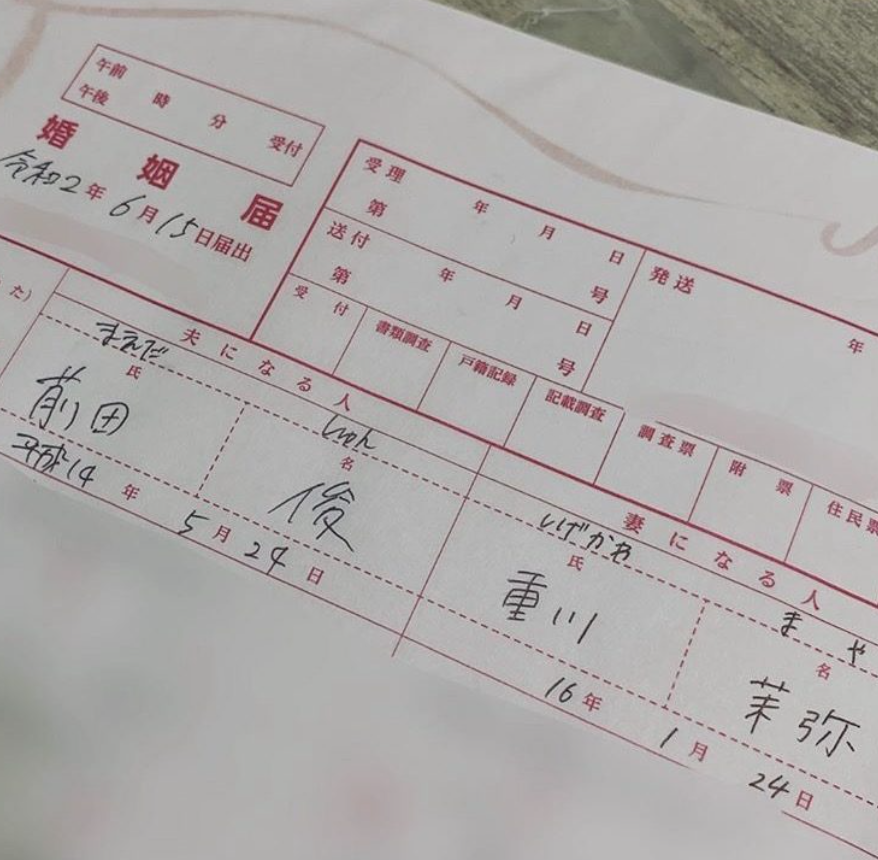 午前
午後 時 分 受付
婚姻届
令和2年6月15日届出
受理 年 月 日
第 号
送付 年 月 日
第 号
発送 年
受付 書類調査 戸籍記録 記載調査 調査票 附票 住民票
た)
夫になる人
まえだ しゅん
氏 名
前田 俊
平成14年5月24日
妻になる人
しげかわ まや
氏 名
重川 茉弥
16年1月24日